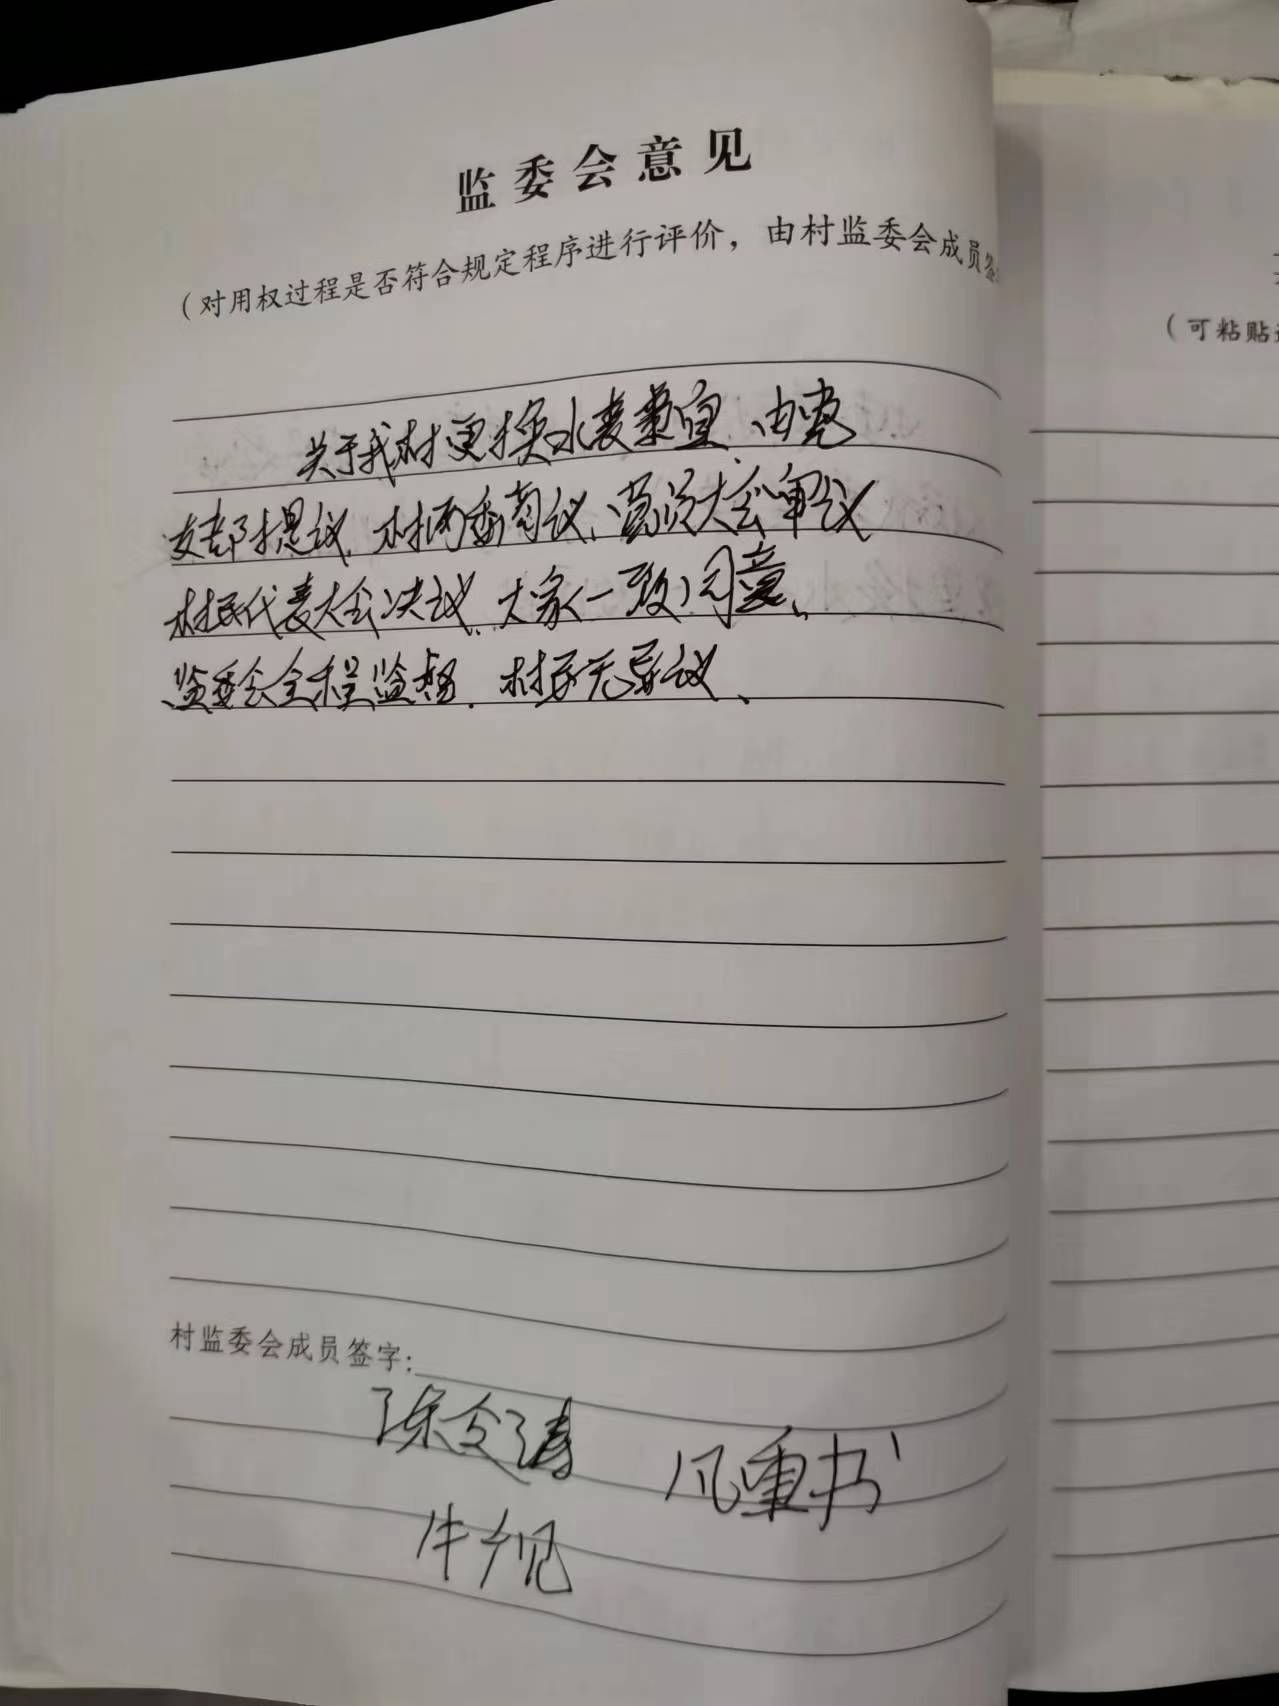 监委会意见
（对用权过程是否符合规定程序进行评价，由村监委会成员签
（可粘贴
关于我村更换水表事宜、由党
支部提议、村两委商议、党员大会审议
村民代表大会决议、大家一致同意、
监委会全程监督、村民无异议、
村监委会成员签字：
陈文涛